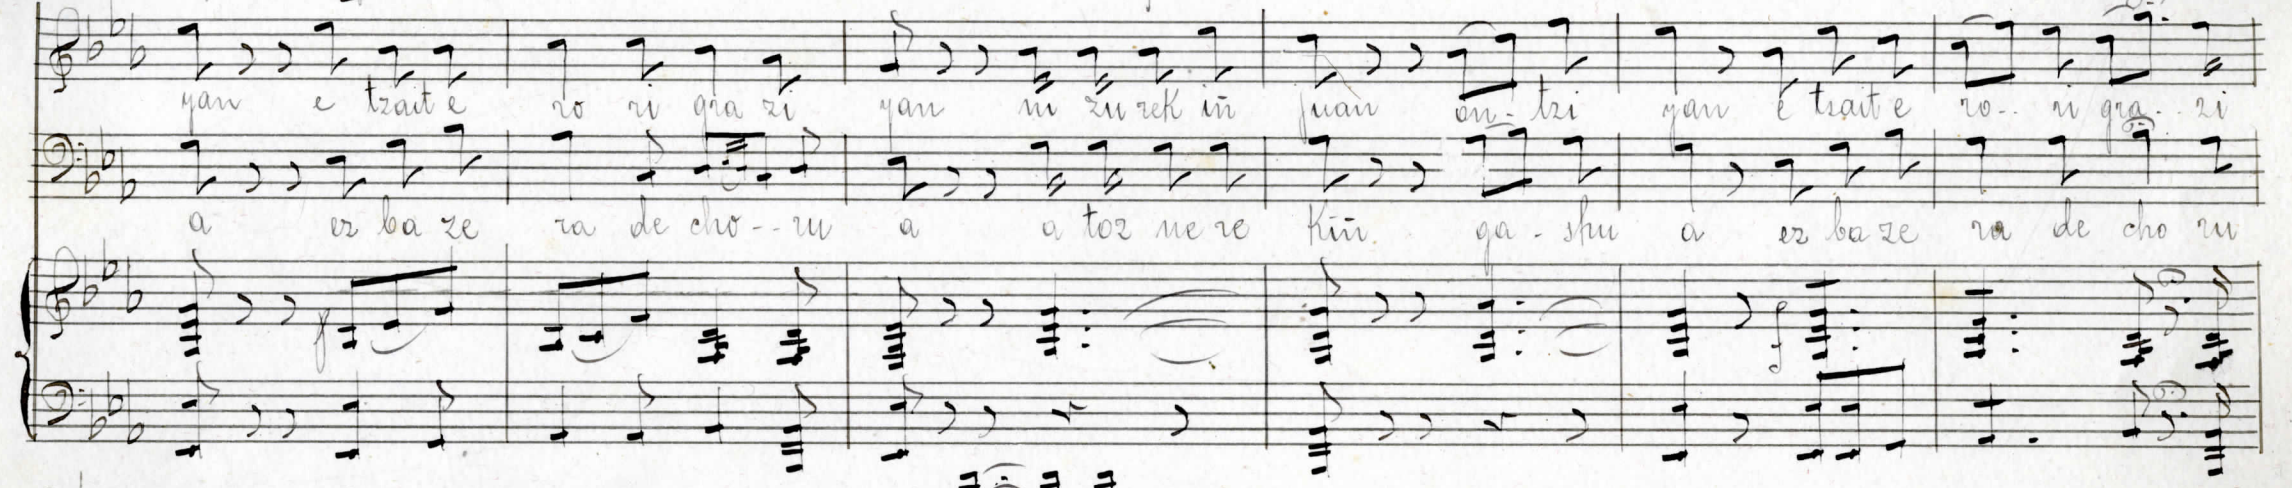 yan e tzait e ro ri gra zi yan ni zu rek iñ juan on - tzi yan e tzait e ro -- ri gra -- zi
a ez ba ze ra de cho -- ru a a toz ne re kiñ ga - shu a ez ba ze ra de cho ru
f f